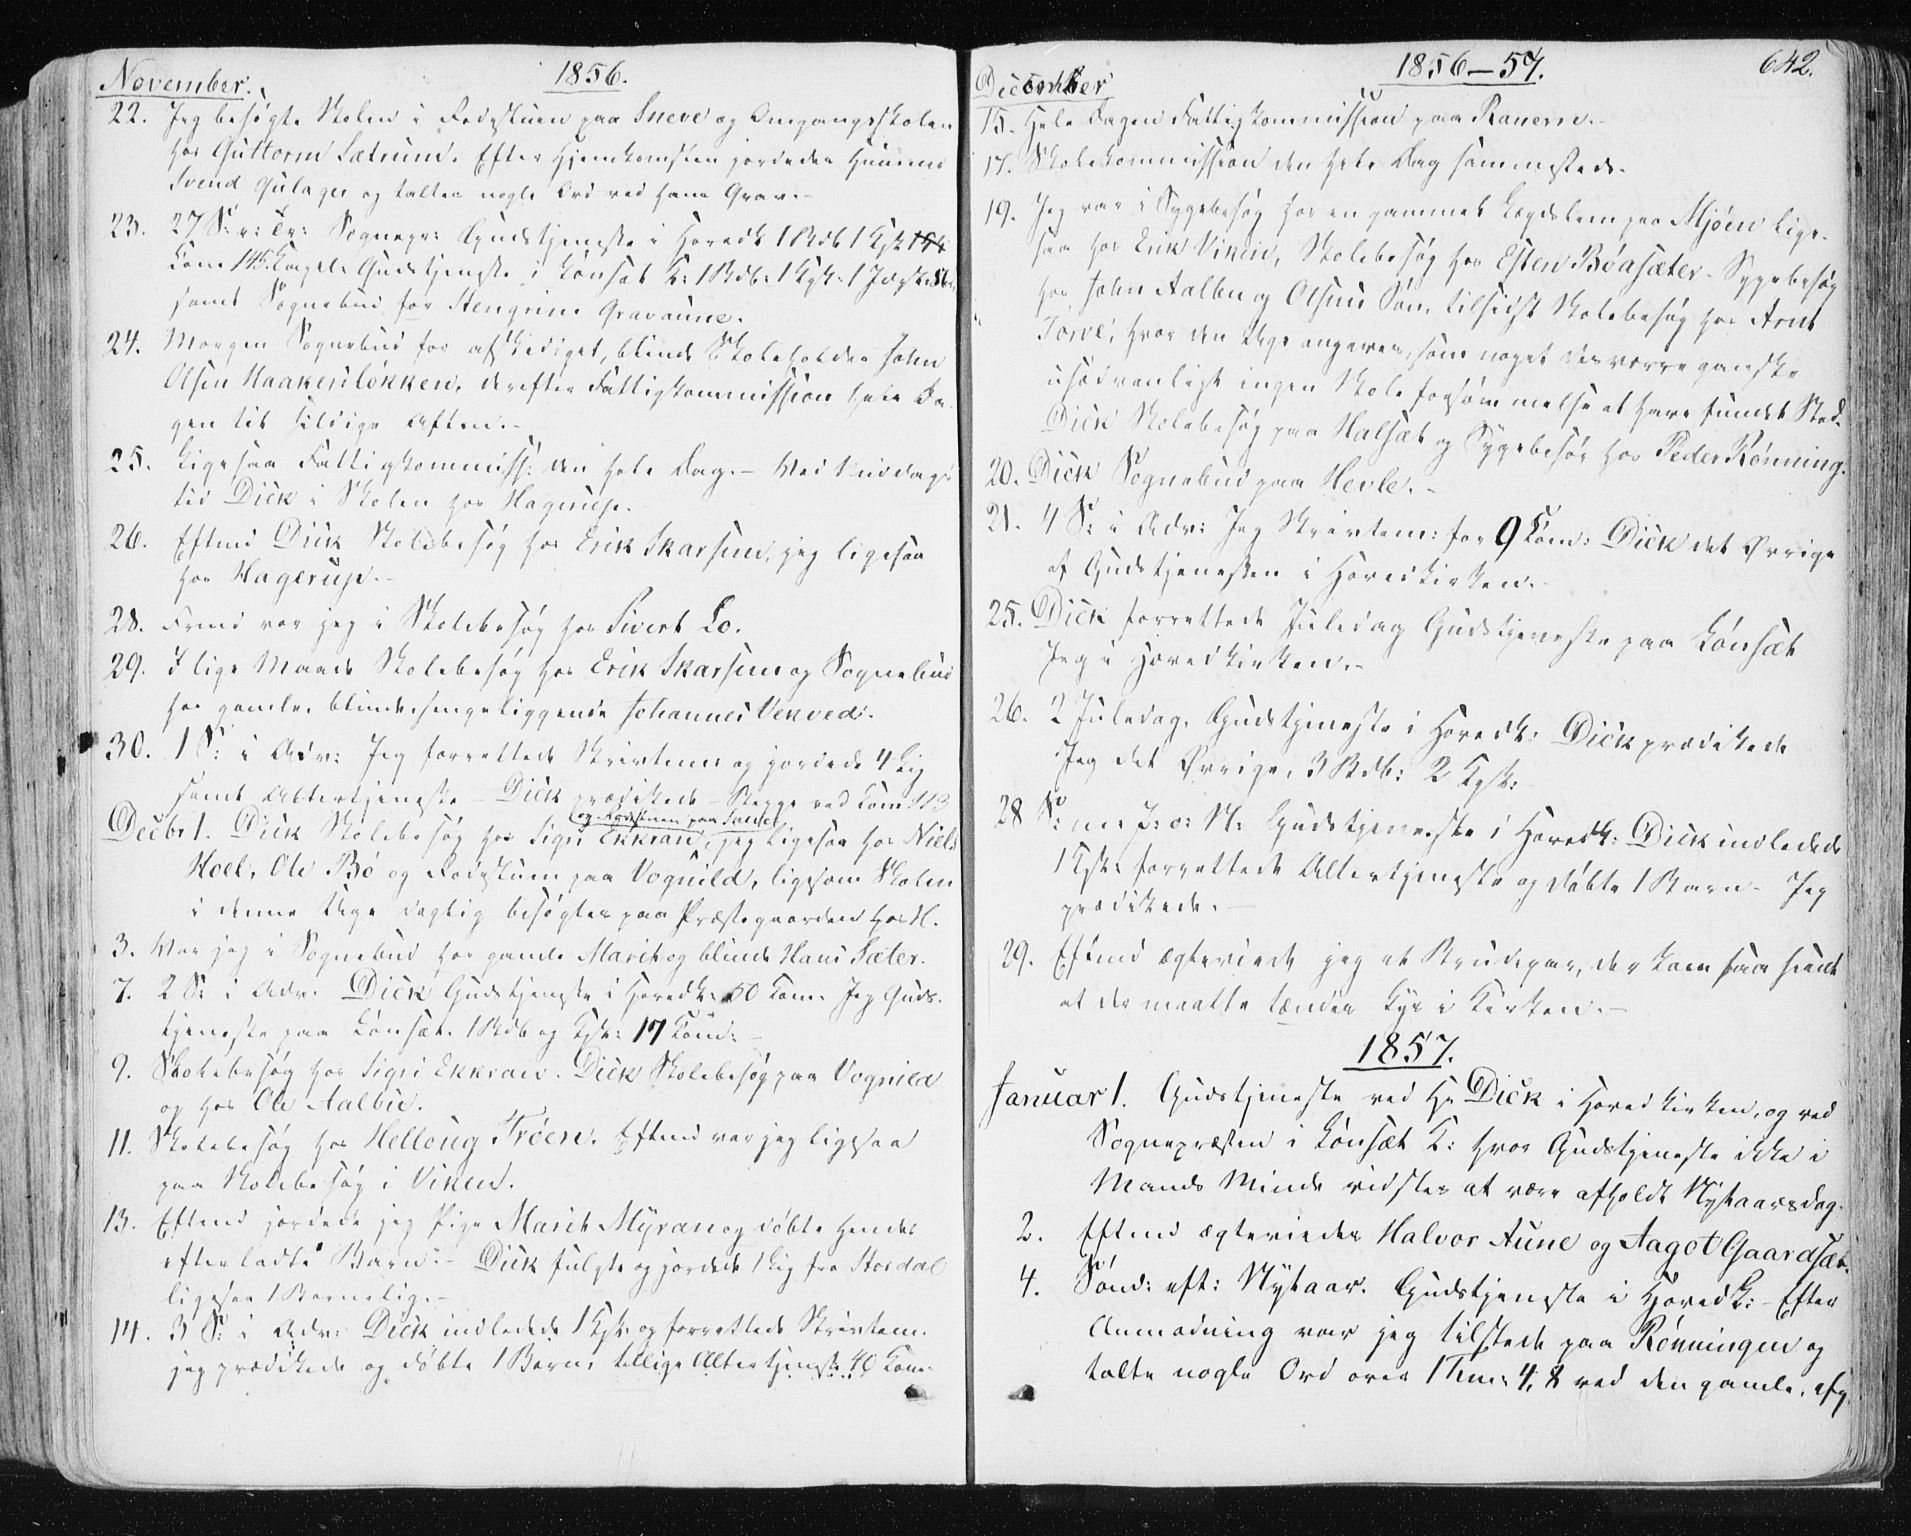 November. 1856.
22. Jeg besøgte Skolen i Rodestuen paa Sneve og Omgangsskolen
hos Guttorm Sætrum. Efter Hjemkomsten jordedes Huusmd
Svend Gulager og taltes nogle Ord ved hans Grav.
23. 27 S: e: Tr: Sognepr: Gudstjeneste i Hovedk 1 Brdb 1 Kgk
Kom: 145. Kapel: Gudstjeneste i Lønset K: 1 Brdb: 1 Kgk: 1 Jdgk
samt Sognebud for Stengrim Gravaune.
24. Morgen Sognebud for afskediget, blinde Skoleholder John
Olsen Haakensløkken, derefter Fattigkommission hele Da-
gen til sildige Aften.-
25. Ligesaa Fattigkommiss: den hele Dag. - Ved Middags
tid Dick i Skolen hos Hagerup.
26. Eftmd Dick Skolebesøg hos Erik Skarsem, jeg ligesaa
hos Hagerup.-
28. Frmd var jeg i Skolebesøg hos Sivert Lo.
29. I lige Maade Skolebesøg hos Erik Skarsem og Sognebud
hos gamle, blinde sengeliggende Johannes Vekved.
30. 1 S: i Adv: Jeg forrettede Skrivtemn og jordede 4 Lig
samt Altertjeneste - Dick prædikede - ved Kom 113
og Rodestuen paa
Decbr 1. Dick Skolebesøg hos Sigri Ekkran, jeg ligesaa hos Niels
Hoel, Ole Bø og Rodestuen paa Vognild, ligesom Skolen
i denne Uge daglig besøgtes paa Præstegaarden hos H.
3. Var jeg i Sognebud hos gamle Marit og blinde Hans Sæter.
7. 2 S: i Adv. Dick Gudstjeneste i Hovedk: 60 Kom. Jeg Guds-
tjeneste paa Lønset. 1 Brdb og Kgk: 17 Kom: -
9. Skolebesøg hos Sigri Ekkran. Dick Skolebesøg paa Vognild
og hos Ole Aalbu.
11. Skolebesøg hos Helloug Trøen. Eftmd var jeg ligesaa
paa Skolebesøg i Viken.
13. Eftmd jordede jeg Pige Marit Myran og døbte hendes
efterladte Barn.- Dick fulgte og jordede 1 Lig fra Stordal
ligesaa 1 Barnelig.-
14. 3 S: i Adv: Dick indledede 1 Kgk og forrettede Skrivtem.
jeg prædikede og døbte 1 Barn, tillige Altertjeneste 40 Kom:
December 1856-57. 642.
15. Hele Dagen Fattigkommission paa Rauern.-
17. Skolekommission den hele Dag sammesteds.
19. Jeg var i Sygebesøg hos en gammel Lægdslem paa Mjøen lige-
saa hos Erik Viken, Skolebesøg hos Esten Bøasæter - Sygebesøg
hos John Aalbu og Olsens Søn, tilsidst Skolebesøg hos Arnt
Torve, hvor den Uge angaves, som noget desværre ganske
usædvanligt ingen Skoleforsømmelse at have fundet Sted.
Dick Skolebesøg paa Halset og Sygebesøg hos Peder Rønning.
20. Dick Sognebud paa Hevle.-
21. 4 S: i Adv: Jeg Skrivtem: for 9 Kom: Dick det Øvrige
af Gudstjenesten i Hovedkirken.-
25. Dick forrettede Juledag Gudstjeneste paa Lønset
Jeg i Hovedkirken.-
26. 2 Juledag. Gudstjeneste i Hovedk: Dick prædikede
Jeg det Øvrige. 3 Brdb: 2 Kgk:
28 S: m: J: o: N: Gudstjeneste i Hovedk: Dick indledede
1 Kgk: forrettede Altertjeneste og døbte 1 Barn - Jeg
prædikede.-
29. Eftmd ægteviede jeg et Brudepar, der kom saa sent
at der maatte tændes Lys i Kirken.-
1857.
Januar 1. Gudstjeneste ved Hr Dick i Hovedkirken, og ved
Sognepræsten i Lønset K: hvor Gudstjeneste ikke i
Mands Minde vidstes at være afholdt Nytaarsdag.
2. Eftmd ægteviedes Halvor Aune og Aagot Gaardset.
4. Sønd: eft: Nytaar. Gudstjeneste i Hovedk: - Efter
Anmodning var jeg tilstede paa Rønningen og
talte nogle Ord over 1 Tim: 4, 8 ved den gamle,